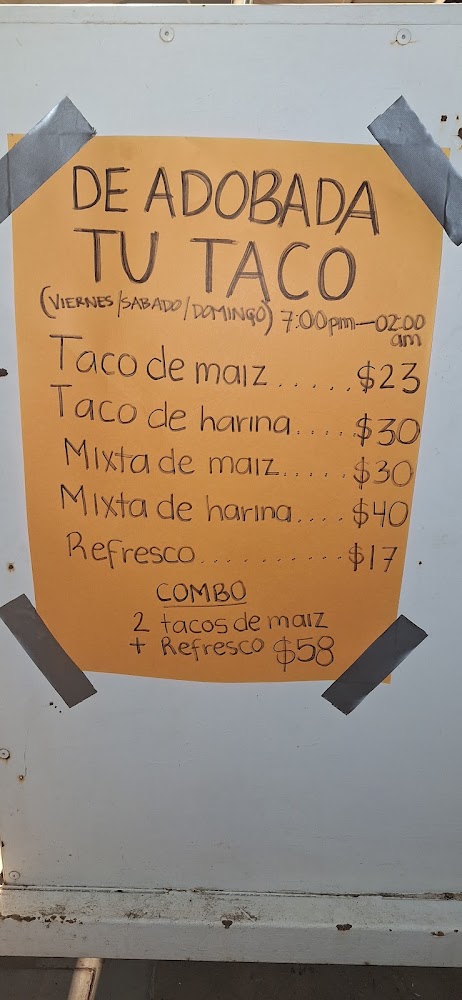 DE ADOBADA
TU TACO
(VIERNES/SABADO/DOMINGO) 7:00pm-02:00
am
Taco de maiz......$23
Taco de harina....$30
Mixta de maiz.....$30
Mixta de harina....$40
Refresco...........$17
COMBO
2 tacos de maiz
+ Refresco $58